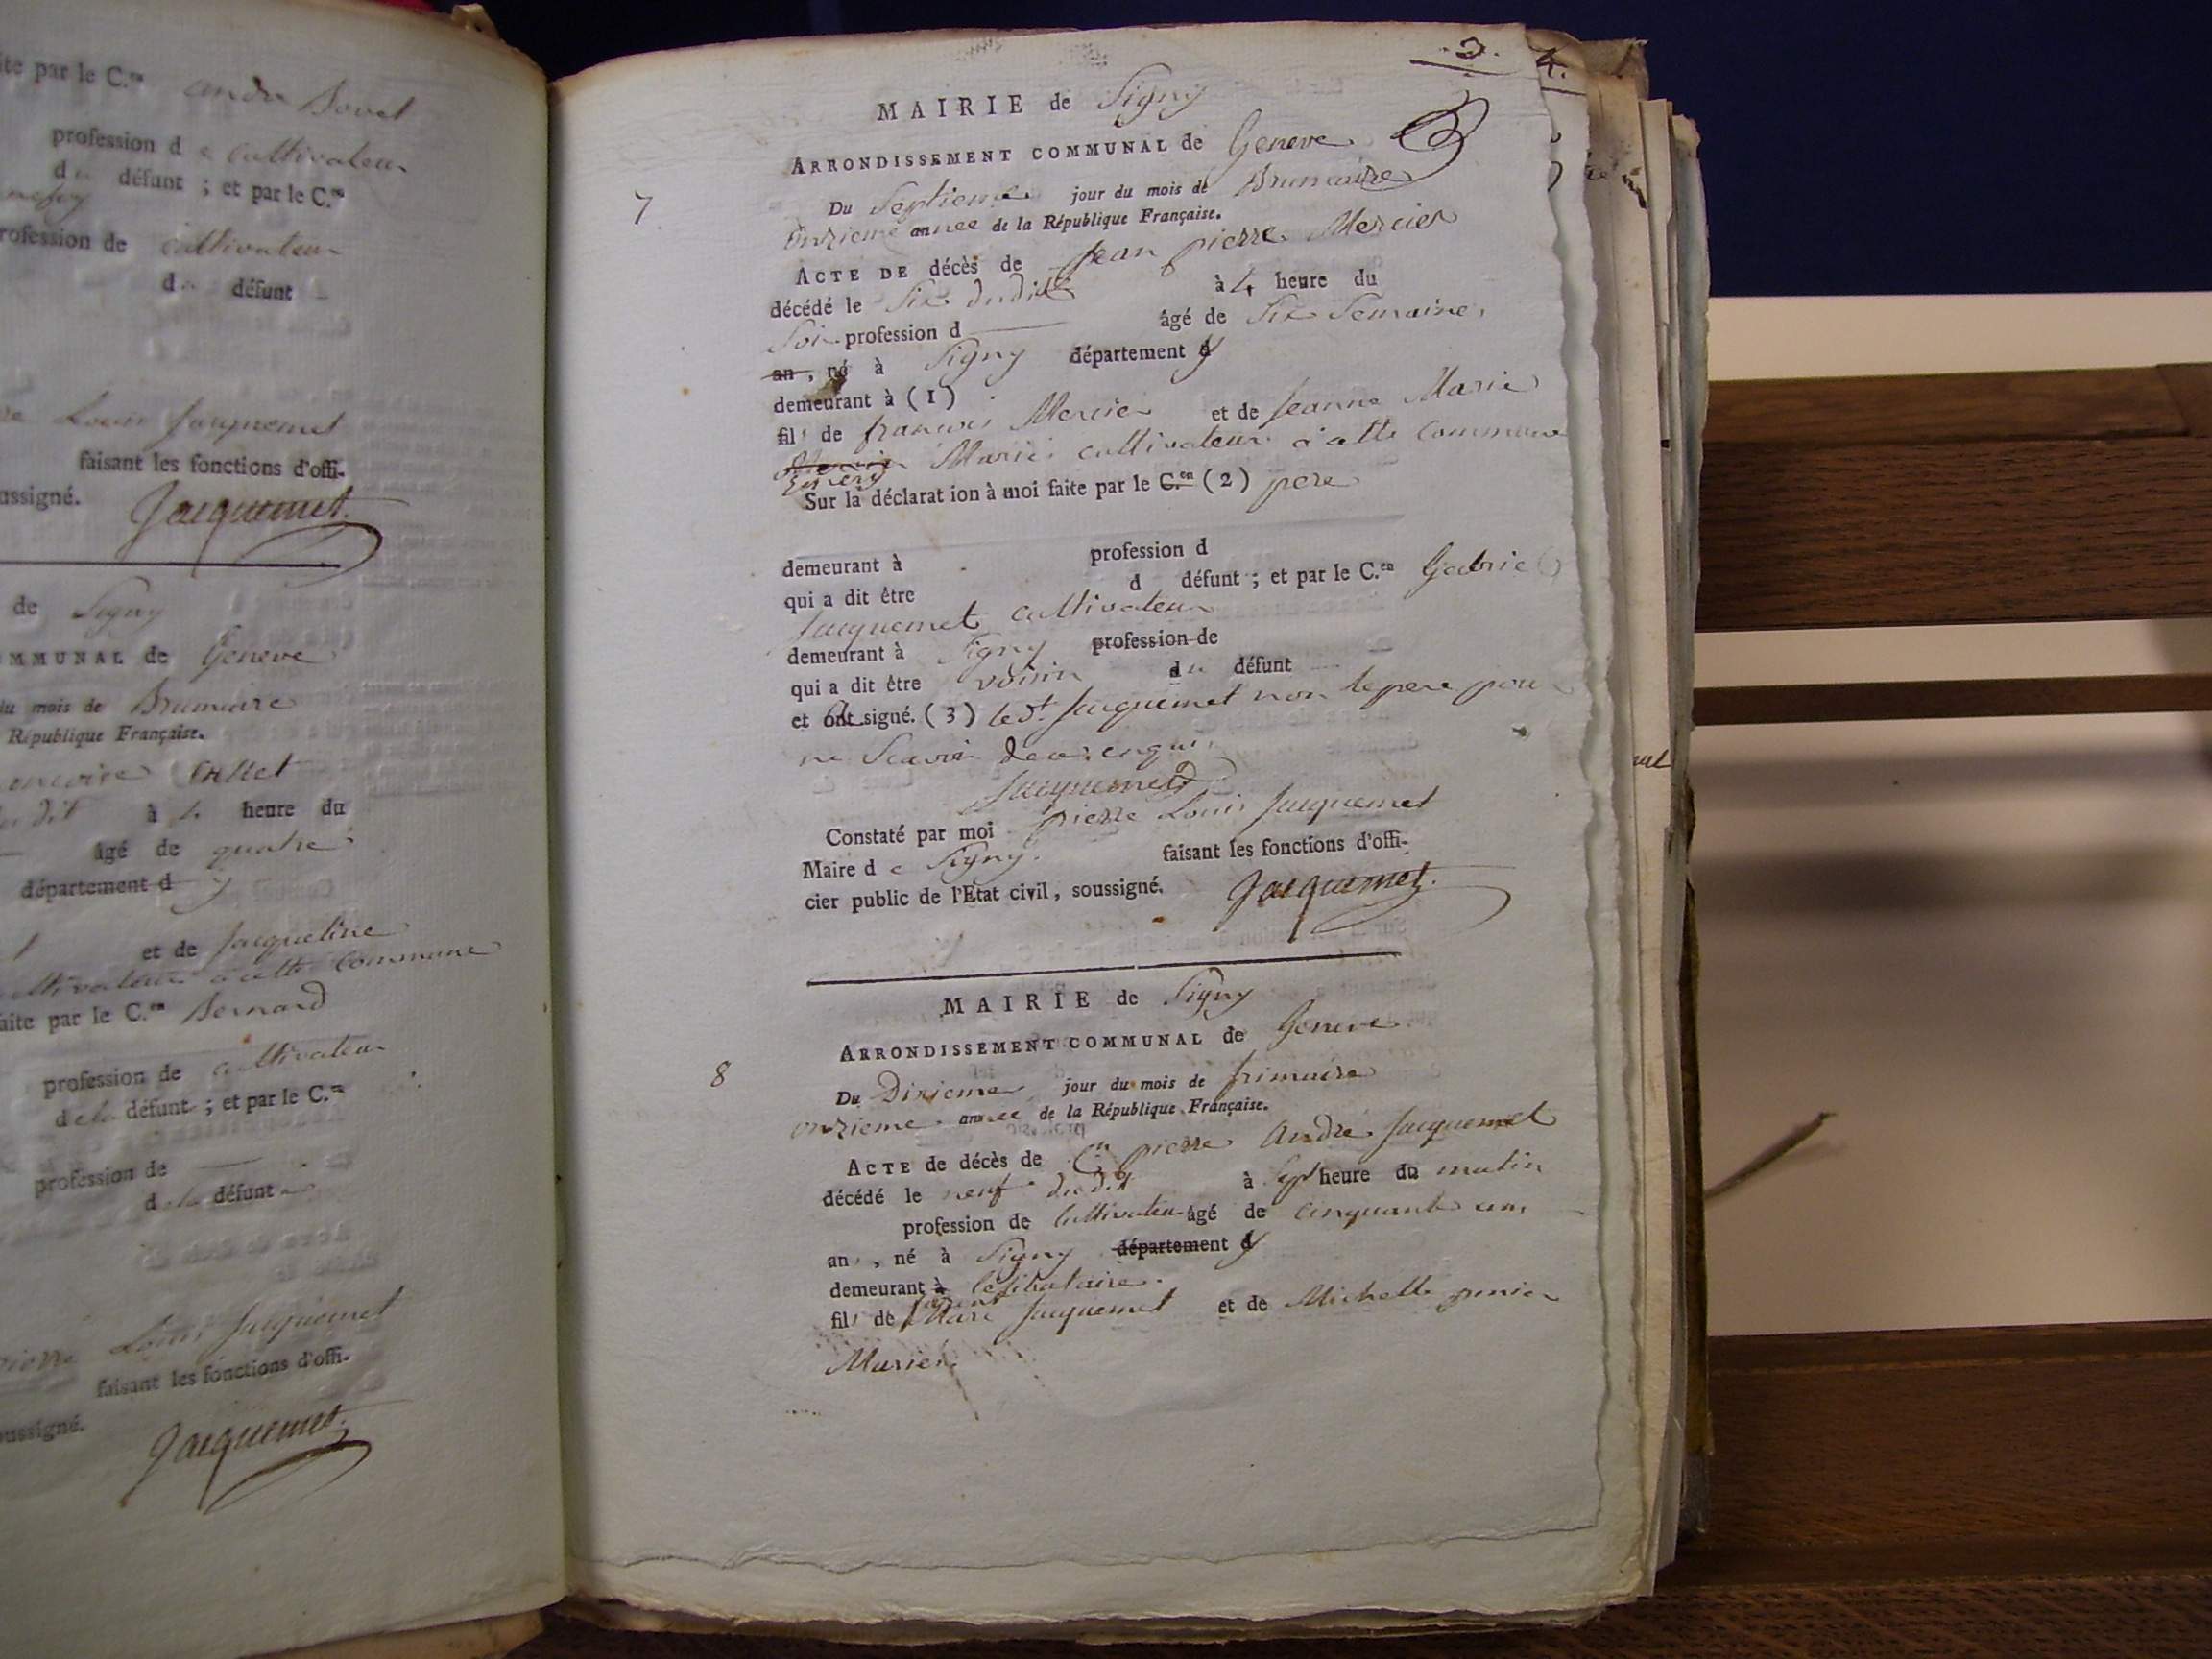 ite par le C.en andre Bovet
profession d e cultivateur
du défunt ; et par le C.en
rofession de cultivateur
du défunt
Louis Jacquemet
faisant les fonctions d'offi-
ussigné. Jacquemet
de Signy
OMMUNAL de Geneve
du mois de Brumaire
République Française.
à 4 heure du
âgé de quatre
département d y
et de Jacqueline
cultivateur a cette Commune
aite par le C.en Bernard
profession de cultivateur
de la défunt ; et par le C.en
profession de
de la défunt
pierre Louis Jacquemet
faisant les fonctions d'offi-
oussigné.
Jacquemet
3. 4.
MAIRIE de Signy
ARRONDISSEMENT COMMUNAL de Geneve
7
Du Septieme jour du mois de Brumaire
Onzieme annee de la République Française.
ACTE DE décès de Jean pierre Mercier
décédé le Six dudit à 4 heure du
Soir profession d âgé de Six Semaine,
an, né à Signy département d y
demeurant à (1)
fils de francois Mercier et de Jeanne Marie
Mariés cultivateur à cette Commune
Sur la déclarat ion à moi faite par le C.en (2) pere
demeurant à profession d
qui a dit être d défunt ; et par le C.en Gabriel
Jacquemet cultivateur
demeurant à Signy profession de
qui a dit être voisin du défunt
et ont signé. (3) led.t Jacquemet non le pere pour
ne Scavoir de ce enquis
Jacquemet
Constaté par moi pierre Louis Jacquemet
Maire d e Signy. faisant les fonctions d'offi-
cier public de l'Etat civil, soussigné. Jacquemet.
MAIRIE de Signy
ARRONDISSEMENT COMMUNAL de Geneve
8
Du Dixieme jour du mois de frimaire
onzieme annee de la République Française.
ACTE de décès de C.en pierre André Jacquemet
décédé le neuf dudit à Sept heure du matin
profession de Cultivateur âgé de Cinquante un,
an, né à Signy département d y
demeurant à Celibataire.
fils de Marc Jacquemet et de Michelle
Mariés.